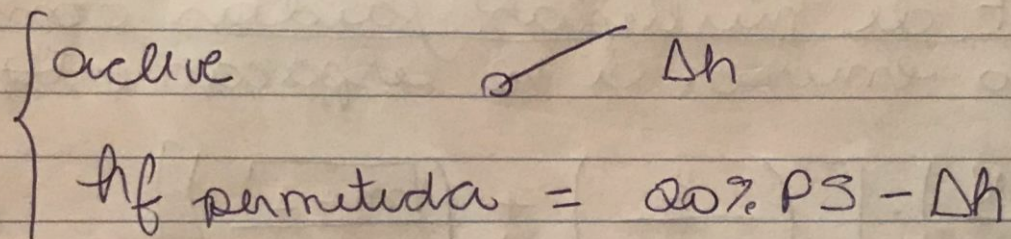 aclive Δh
hf permitida = 20% PS - Δh